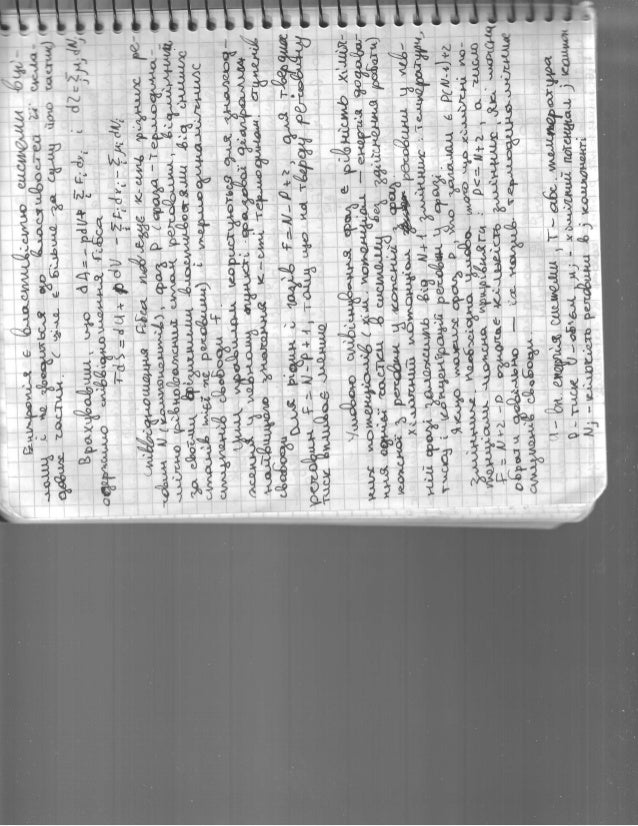 Ентропія є властивістю системи в ці-
лому і не зводиться до властивостей її скла-
дових частин. (ціле є більше за суму його частин)
Врахувавши, що dA = -pdV + ∑ Fᵢdrᵢ ; dZ = ∑ μⱼdNⱼ
одержимо співвідношення Гібса
TdS = dU + pdV - ∑ Fᵢdrᵢ - ∑ μⱼdNⱼ
Співвідношення Гібса пов'язує к-сть різних ре-
човин N (компонентів), фаз P (фаза - термодина-
мічно рівноважний стан речовини, відмінний
за своїми фізичними властивостями від інших
станів тої же речовини) і термодинамічних
ступенів свободи F.
Цим правилом користуються для знаход-
ження у певному пункті фазової діаграми
найвищого значення к-сті термодинам. ступенів
свободи
Для рідин і газів F = N - P + 2, для твердих
речовин F = N - P + 1, тому що на тверду речовину
тиск впливає менше
Умовою співіснування фаз є рівність хіміч-
них потенціалів (хім потенціал - енергія додава-
ння одної частки в систему без здійснення роботи)
кожної з речовин у кожній з фаз
Хімічний потенціал речовини у пев-
ній фазі залежить від N+1 змінних: температури,
тиску і концентрацій речовин у фазі.
Якщо таких фаз P, то загалом є P(N-1)+2
змінних. Необхідна умова того що хімічні по-
тенціали можна прирівняти: P <= N+2, а число
F = N+2-P означає кількість змінних, які можемо
обрати довільно - їх назив. термодинамічних
ступенів свободи.
U - вн. енергія системи, T - абс температура
p - тиск, V - об'єм, μⱼ - хімічний потенціал j компон
Nⱼ - кількість речовини в j компоненті